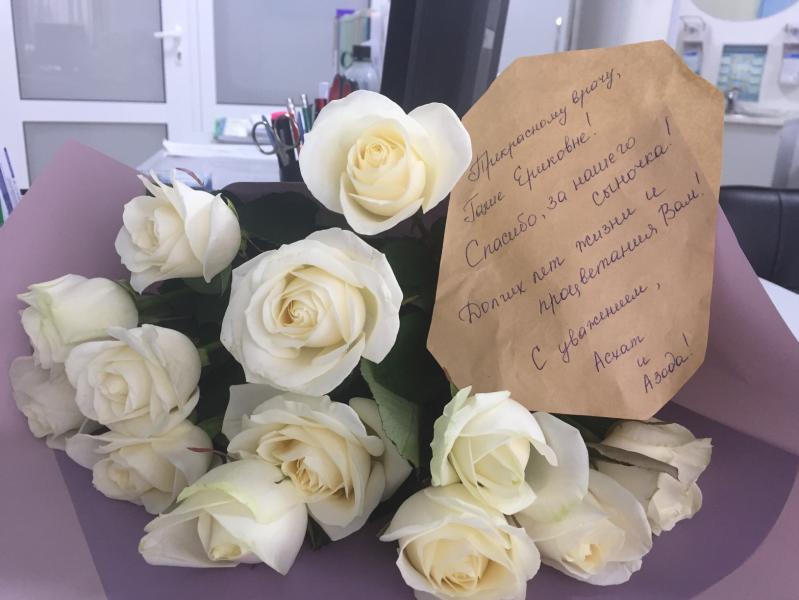 Прикрасному врачу,
Гание Ериковне!
Спасибо, за нашего
сыночка!
Долгих лет жизни и
процветания Вам!
С уважением,
Асхат
и
Азада!